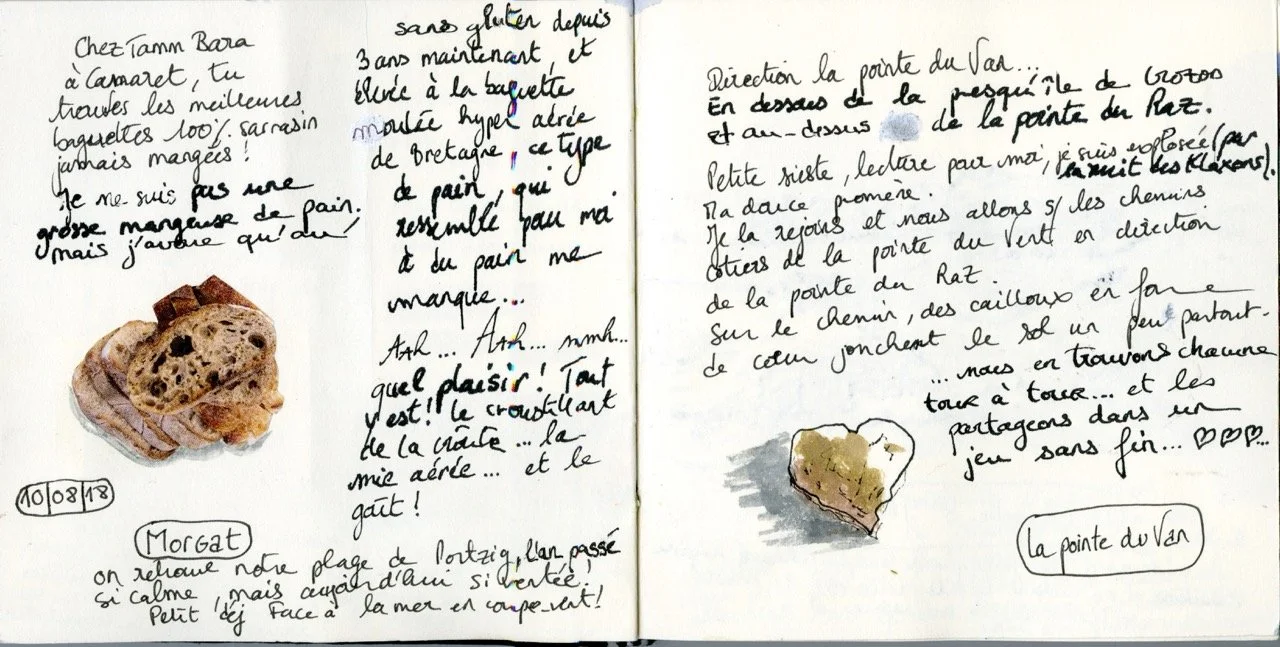 Chez Tamm Bara
à Camaret, tu
trouves les meilleures
baguettes 100% sarrasin
jamais mangées !
Je ne suis pas une
grosse mangeuse de pain.
mais j'avoue qu'au
sans gluten depuis
3 ans maintenant, et
élevée à la baguette
moulée hyper aérée
de Bretagne, ce type
de pain, qui
ressemble pour moi
à du pain me
manque...
AAh... AAh... mmh...
quel plaisir ! Tout
y est ! le croustillant
de la croûte... la
mie aérée... et le
goût !
10/08/18
Morgat
on retrouve notre plage de Portzig, l'an passé
si calme, mais aujourd'hui si ventée !
Petit déj face à la mer en coupe-vent !
Direction la pointe du Van...
En dessous de la presqu'île de Crozon
et au-dessus de la pointe du Raz.
Petite sieste, lecture pour moi, je suis explosée (par
la nuit des Klaxons).
Ma douce promène.
Je la rejoins et nous allons s/ les chemins
côtiers de la pointe du Vent en direction
de la pointe du Raz.
Sur le chemin, des cailloux en forme
de cœur jonchent le sol un peu partout.
... nous en trouvons chacune
tour à tour... et les
partageons dans un
jeu sans fin... ♡♡♡...
La pointe du Van